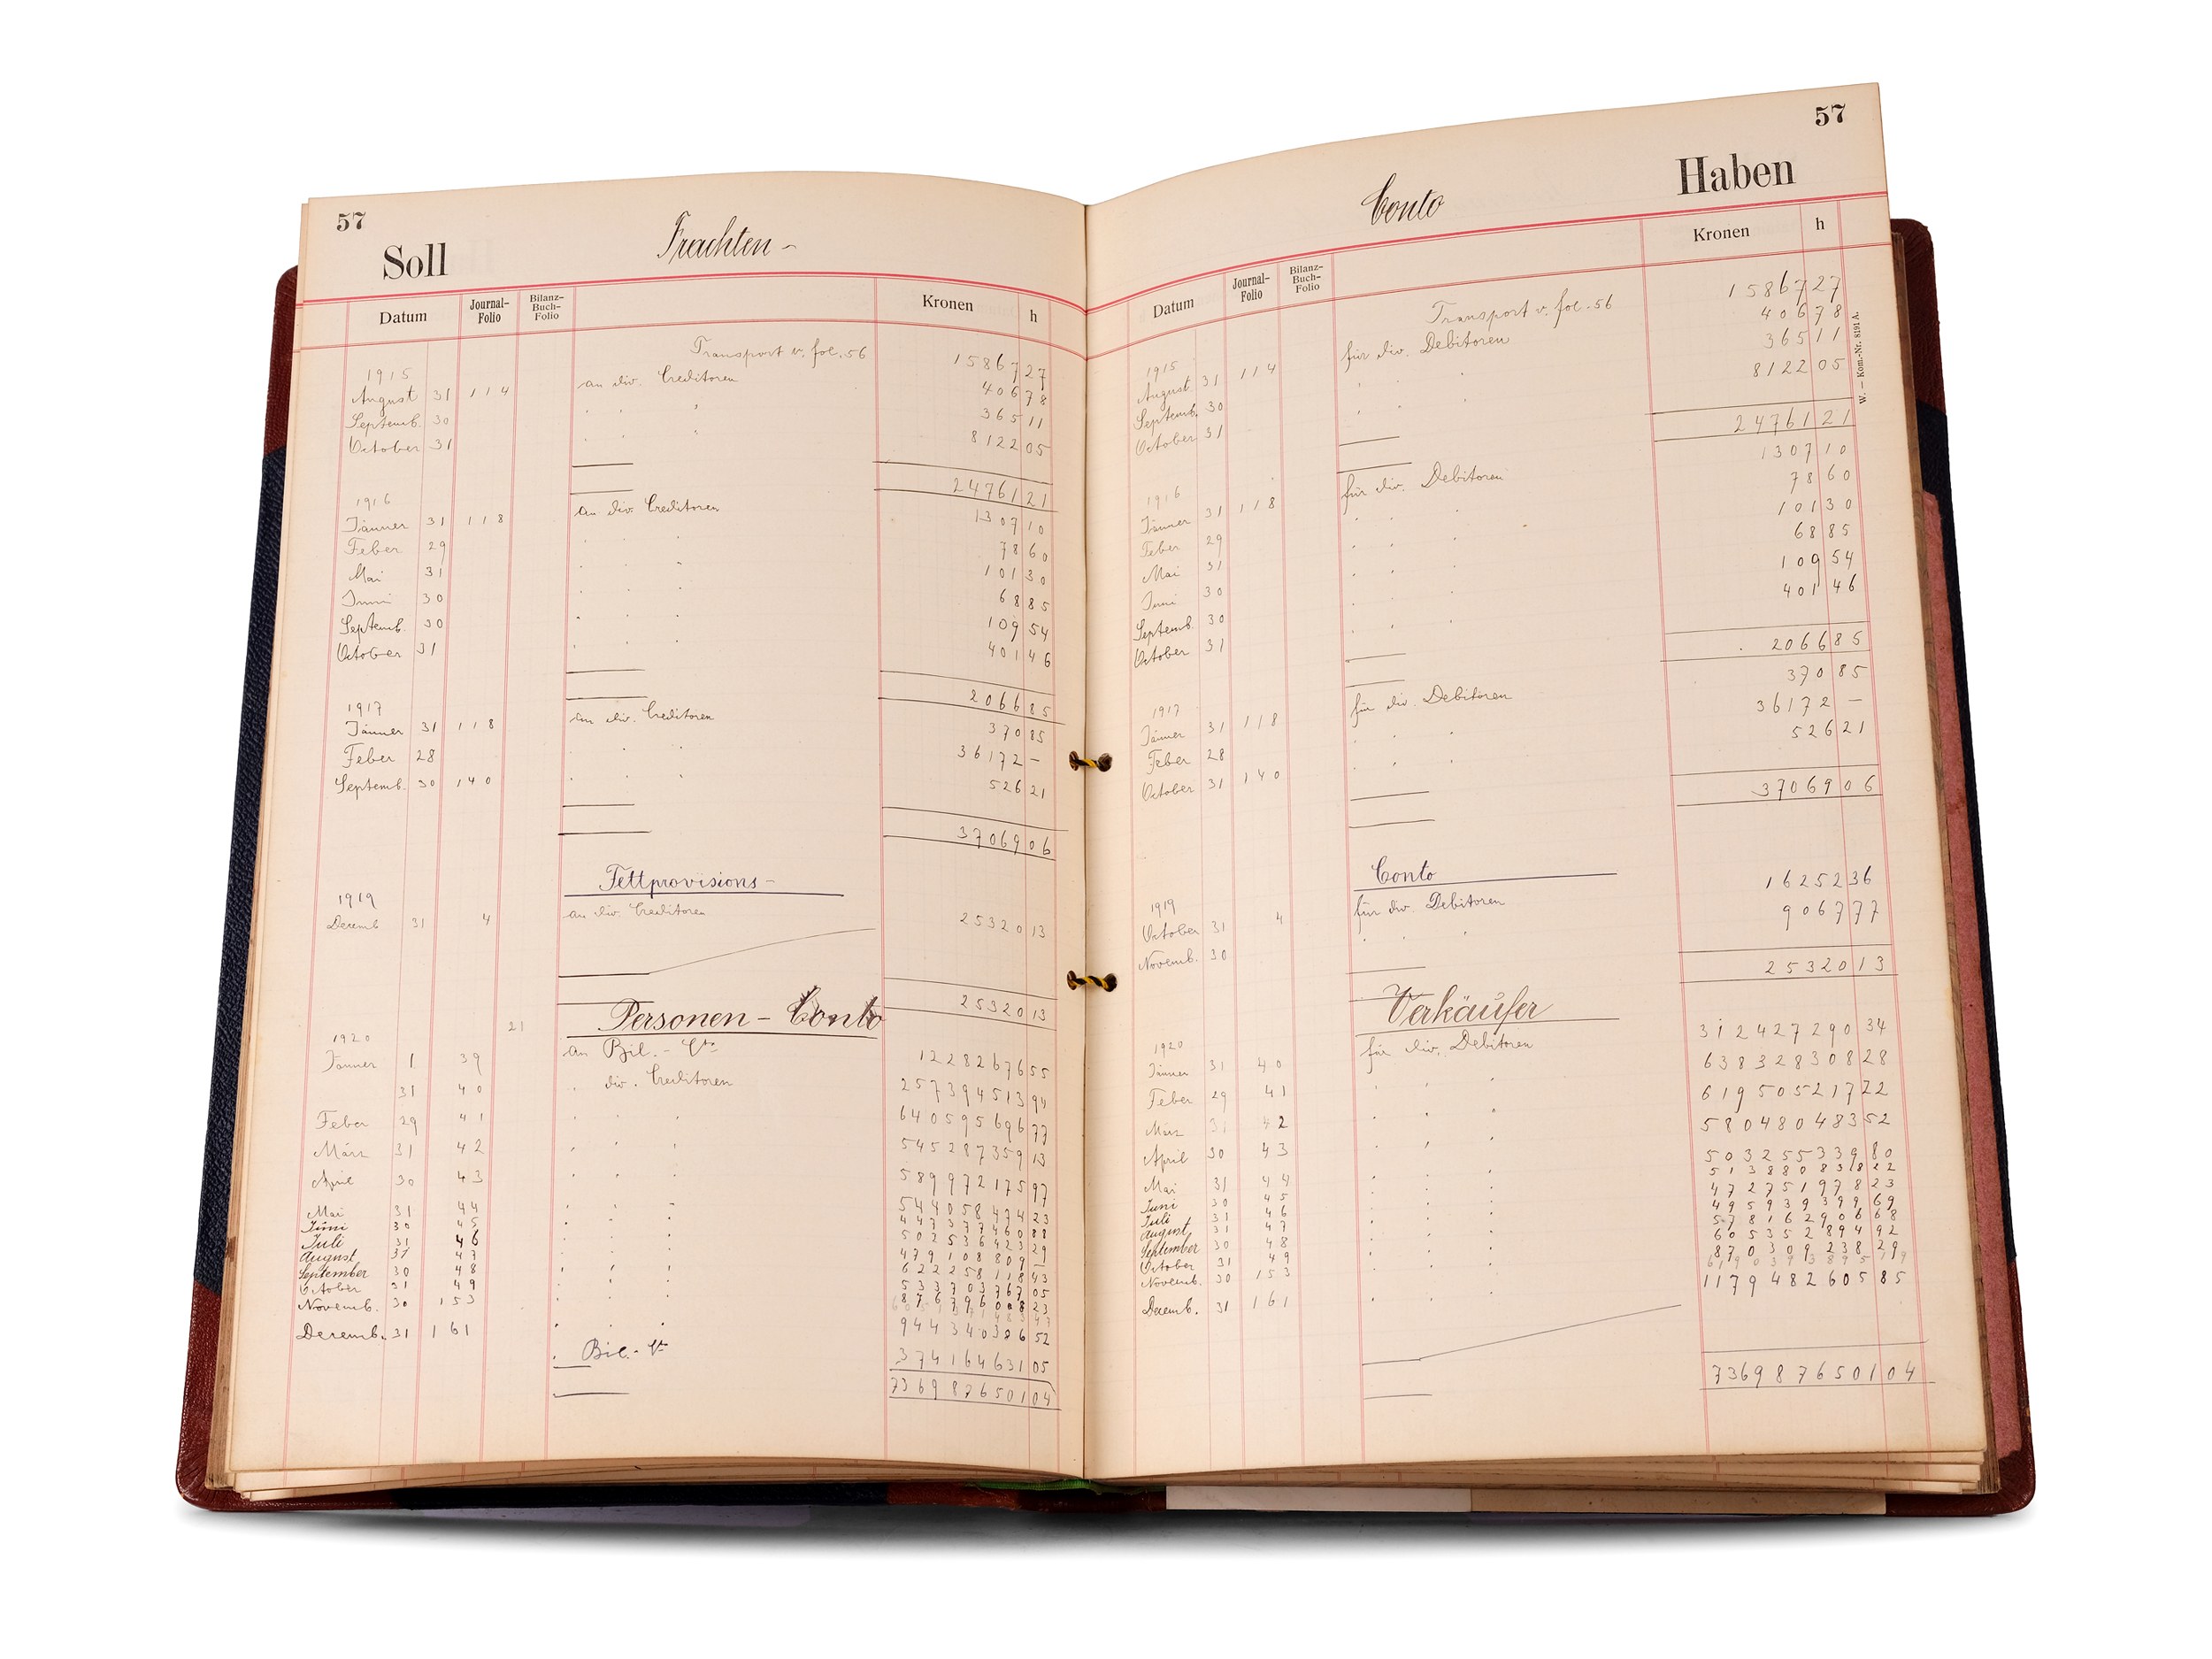 57
Soll Frachten-
Datum Journal-Folio Bilanz-Buch-Folio Kronen h
Transport v. fol. 56 15867 27
1915
August 31 114 an div. Creditoren 406 78
Septemb. 30 " " 365 11
October 31 " " 8122 05
24761 21
1916
Jänner 31 118 an div. Creditoren 1307 10
Feber 29 " " 78 60
Mai 31 " " 101 30
Juni 30 " " 68 85
Septemb. 30 " " 109 54
October 31 " " 401 46
2066 85
1917
Jänner 31 118 an div. Creditoren 370 85
Feber 28 " " 36172 -
Septemb. 30 140 " " 526 21
37069 06
Fettprovisions-
1919
Decemb 31 4 an div. Creditoren 25320 13
25320 13
Personen - Conto
1920 21
Jänner 1 39 an Bil. - Cto 12282676 55
31 40 " div. Creditoren 257394513 94
Feber 29 41 " " 640595696 77
März 31 42 " " 545287359 13
April 30 43 " " 589972175 97
Mai 31 44 " " 544058474 23
Juni 30 45 " "
Juli 31 46 " " 502536423 29
August 31 47 " " 479108809 -
September 30 48 " " 622258118 43
October 31 49 " " 533703767 05
Novemb. 30 153 " "
Decemb. 31 161 " " 944340306 52
" Bil.- Cto 374164631 05
7369876501 04
57
Conto Haben
Datum Journal-Folio Bilanz-Buch-Folio Kronen h
W. — Kom.-Nr. 8191 A.
Transport v. fol. 56 15867 27
1915
August 31 114 für div. Debitoren 406 78
Septemb. 30 " " 365 11
October 31 " " 8122 05
24761 21
1916
Jänner 31 118 für div. Debitoren 1307 10
Feber 29 " " 78 60
Mai 31 " " 101 30
Juni 30 " " 68 85
Septemb. 30 " " 109 54
October 31 " " 401 46
2066 85
1917
Jänner 31 118 für div. Debitoren 370 85
Feber 28 " " 36172 —
October 31 140 " " 526 21
37069 06
Conto
1919
October 31 4 für div. Debitoren 16252 36
Novemb. 30 " " 9067 77
25320 13
Verkäufer
1920
Jänner 31 40 für div. Debitoren 312427290 34
Feber 29 41 " " 638328308 28
März 31 42 " " 619505217 22
April 30 43 " " 580480483 52
Mai 31 44 " " 503255339 80
Juni 30 45 " " 513880838 22
Juli 31 46 " " 472751978 23
August 31 47 " " 495939399 69
September 30 48 " " 578162906 68
October 31 49 " " 605352894 92
Novemb. 30 153 " " 870309238 29
Decemb. 31 161 " " 1179482605 85
7369876501 04